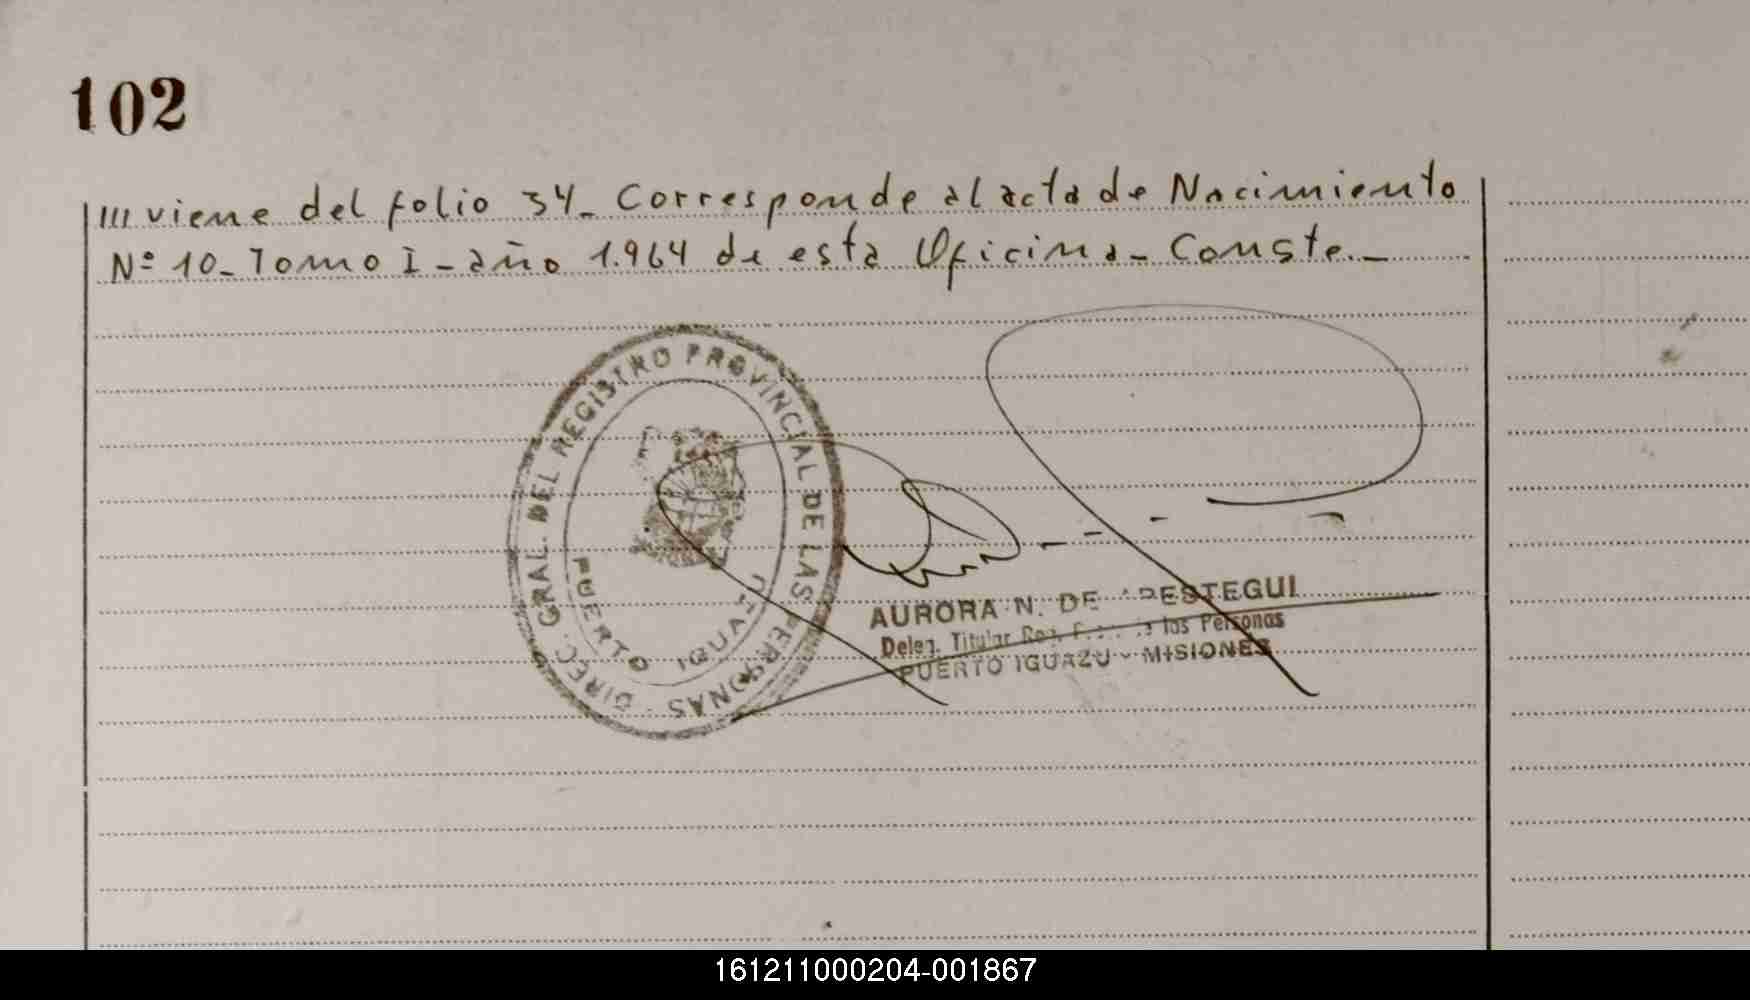 102
III viene del folio 34_ Corresponde al acta de Nacimiento
Nº 10_Tomo I_año 1.964 de esta Oficina_Conste._
DIREC. GRAL. DEL REGISTRO PROVINCIAL DE LAS PERSONAS
PUERTO IGUAZU
AURORA N. DE ARESTEGUI
Deleg. Titular Reg. las Personas
PUERTO IGUAZU - MISIONES
161211000204-001867